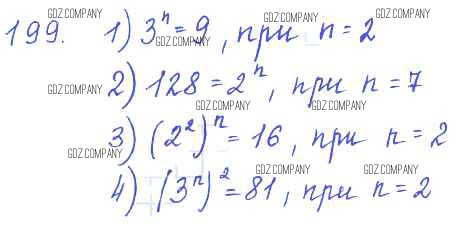 199. 1) 3ⁿ = 9, при n = 2
2) 128 = 2ⁿ, при n = 7
3) (2²)ⁿ = 16, при n = 2
4) (3ⁿ)² = 81, при n = 2
GDZ.COMPANY GDZ.COMPANY GDZ.COMPANY
GDZ.COMPANY
GDZ.COMPANY
GDZ.COMPANY GDZ.COMPANY
GDZ.COMPANY
GDZ.COMPANY GDZ.COMPANY